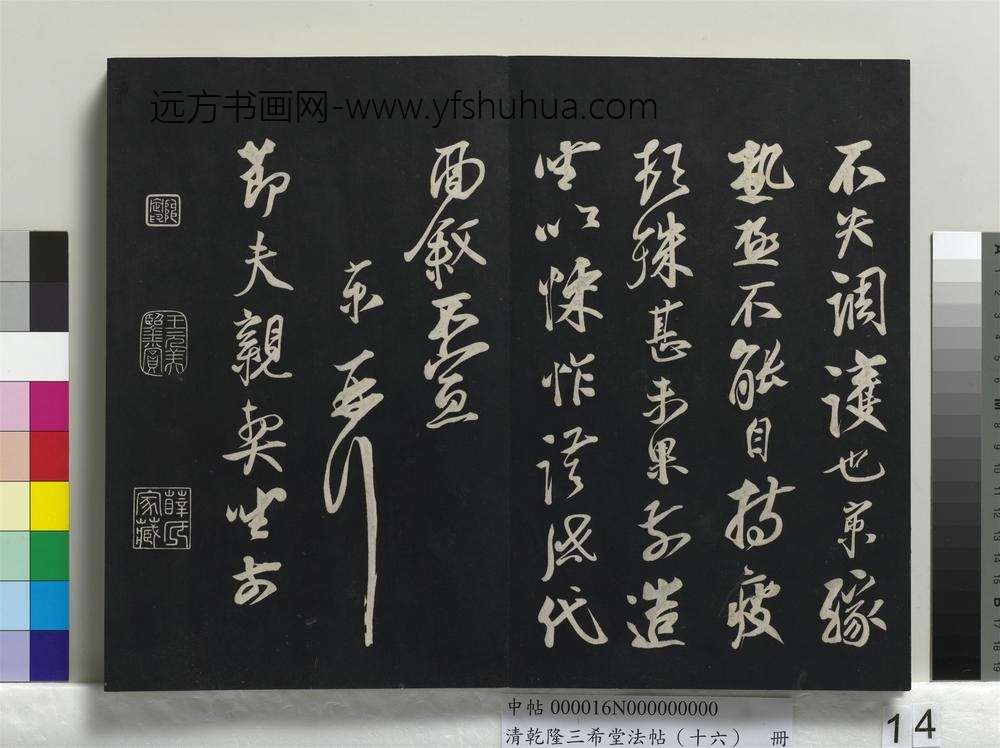 远方书画网-www.yfshuhua.com
不失調護也京緣
熱極不能自持疲
頓殊甚未果前造
坐次悚怍謹啟代
面敘不宣
京再拜
節夫親契坐前
薛氏家藏
中帖 000016N000000000
清乾隆三希堂法帖(十六) 册
14